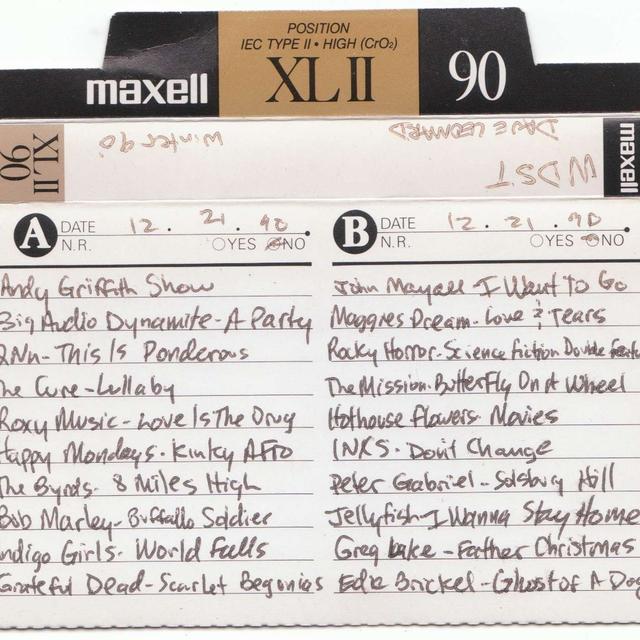 POSITION
IEC TYPE II • HIGH (CrO₂)
maxell XL II 90
XL II 90
Winter 90
DAVE LEONARD
WDST
maxell
A DATE 12. 21. 90.
N.R. YES NO
Andy Griffith Show
Big Audio Dynamite - A Party
2Nu - This Is Ponderous
The Cure - Lullaby
Roxy Music - Love Is The Drug
Happy Mondays - Kinky Afro
The Byrds - 8 Miles High
Bob Marley - Buffallo Soldier
Indigo Girls - World Falls
Grateful Dead - Scarlet Begonias
B DATE 12. 21. 90.
N.R. YES NO
John Mayall I Want To Go
Maggies Dream - Love & Tears
Rocky Horror - Science Fiction Double Feature
The Mission - Butterfly On A Wheel
Hothouse Flowers - Movies
INXS - Don't Change
Peter Gabriel - Solsbury Hill
Jellyfish - I Wanna Stay Home
Greg Lake - Father Christmas
Edie Brickel - Ghost of A Dog